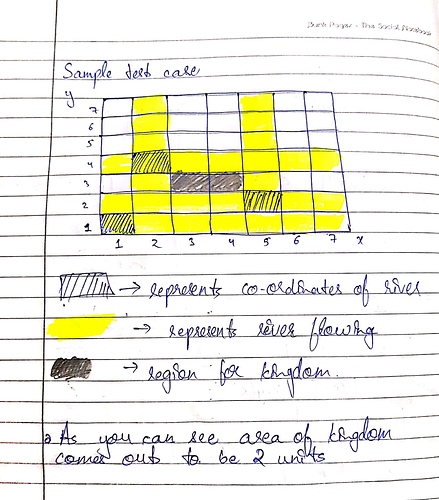 Sample test case
y
7
6
5
4
3
2
1
1 2 3 4 5 6 7 x
→ represents co-ordinates of river
→ represents river flowing
→ region for kingdom.
As you can see area of kingdom
comes out to be 2 units